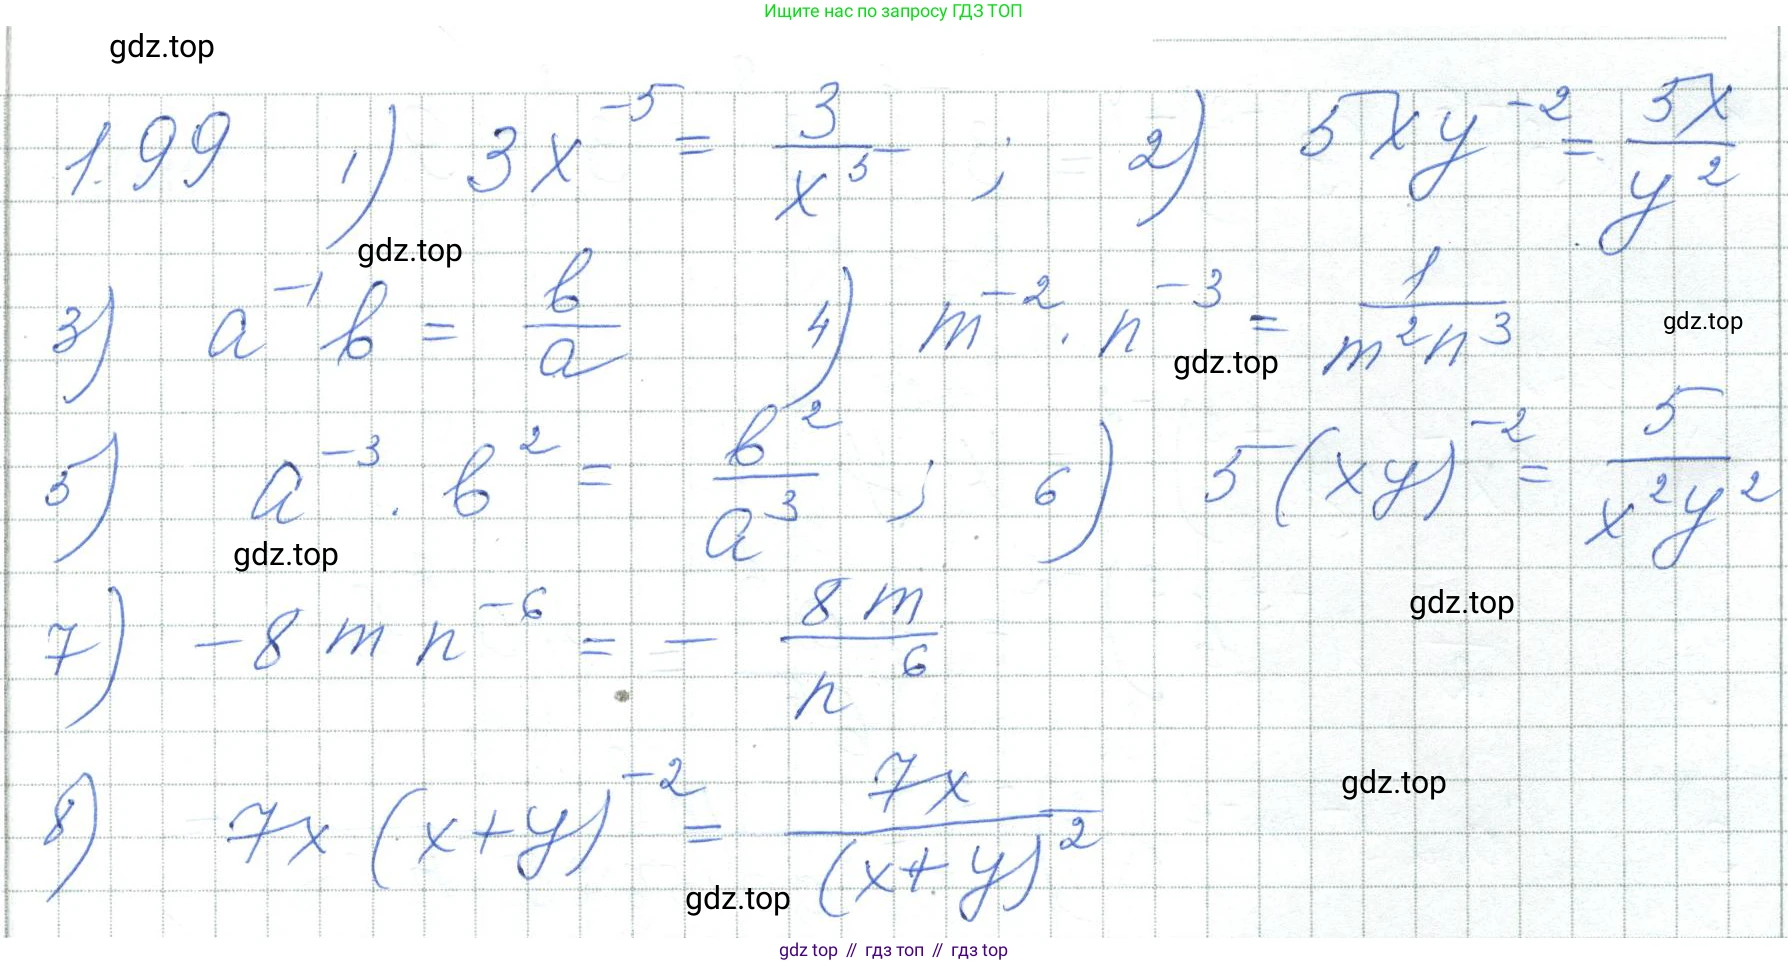 Ищите нас по запросу ГДЗ ТОП
gdz.top
1.99 1) 3x^{-5} = \frac{3}{x^5} ; 2) 5xy^{-2} = \frac{5x}{y^2}
gdz.top
3) a^{-1}b = \frac{b}{a} 4) m^{-2} · n^{-3} = \frac{1}{m^2n^3}
gdz.top
gdz.top
5) a^{-3} · b^2 = \frac{b^2}{a^3} ; 6) 5(xy)^{-2} = \frac{5}{x^2y^2}
gdz.top
gdz.top
7) -8mn^{-6} = -\frac{8m}{n^6}
gdz.top
8) 7x(x+y)^{-2} = \frac{7x}{(x+y)^2}
gdz.top
gdz top // гдз топ // гдз top